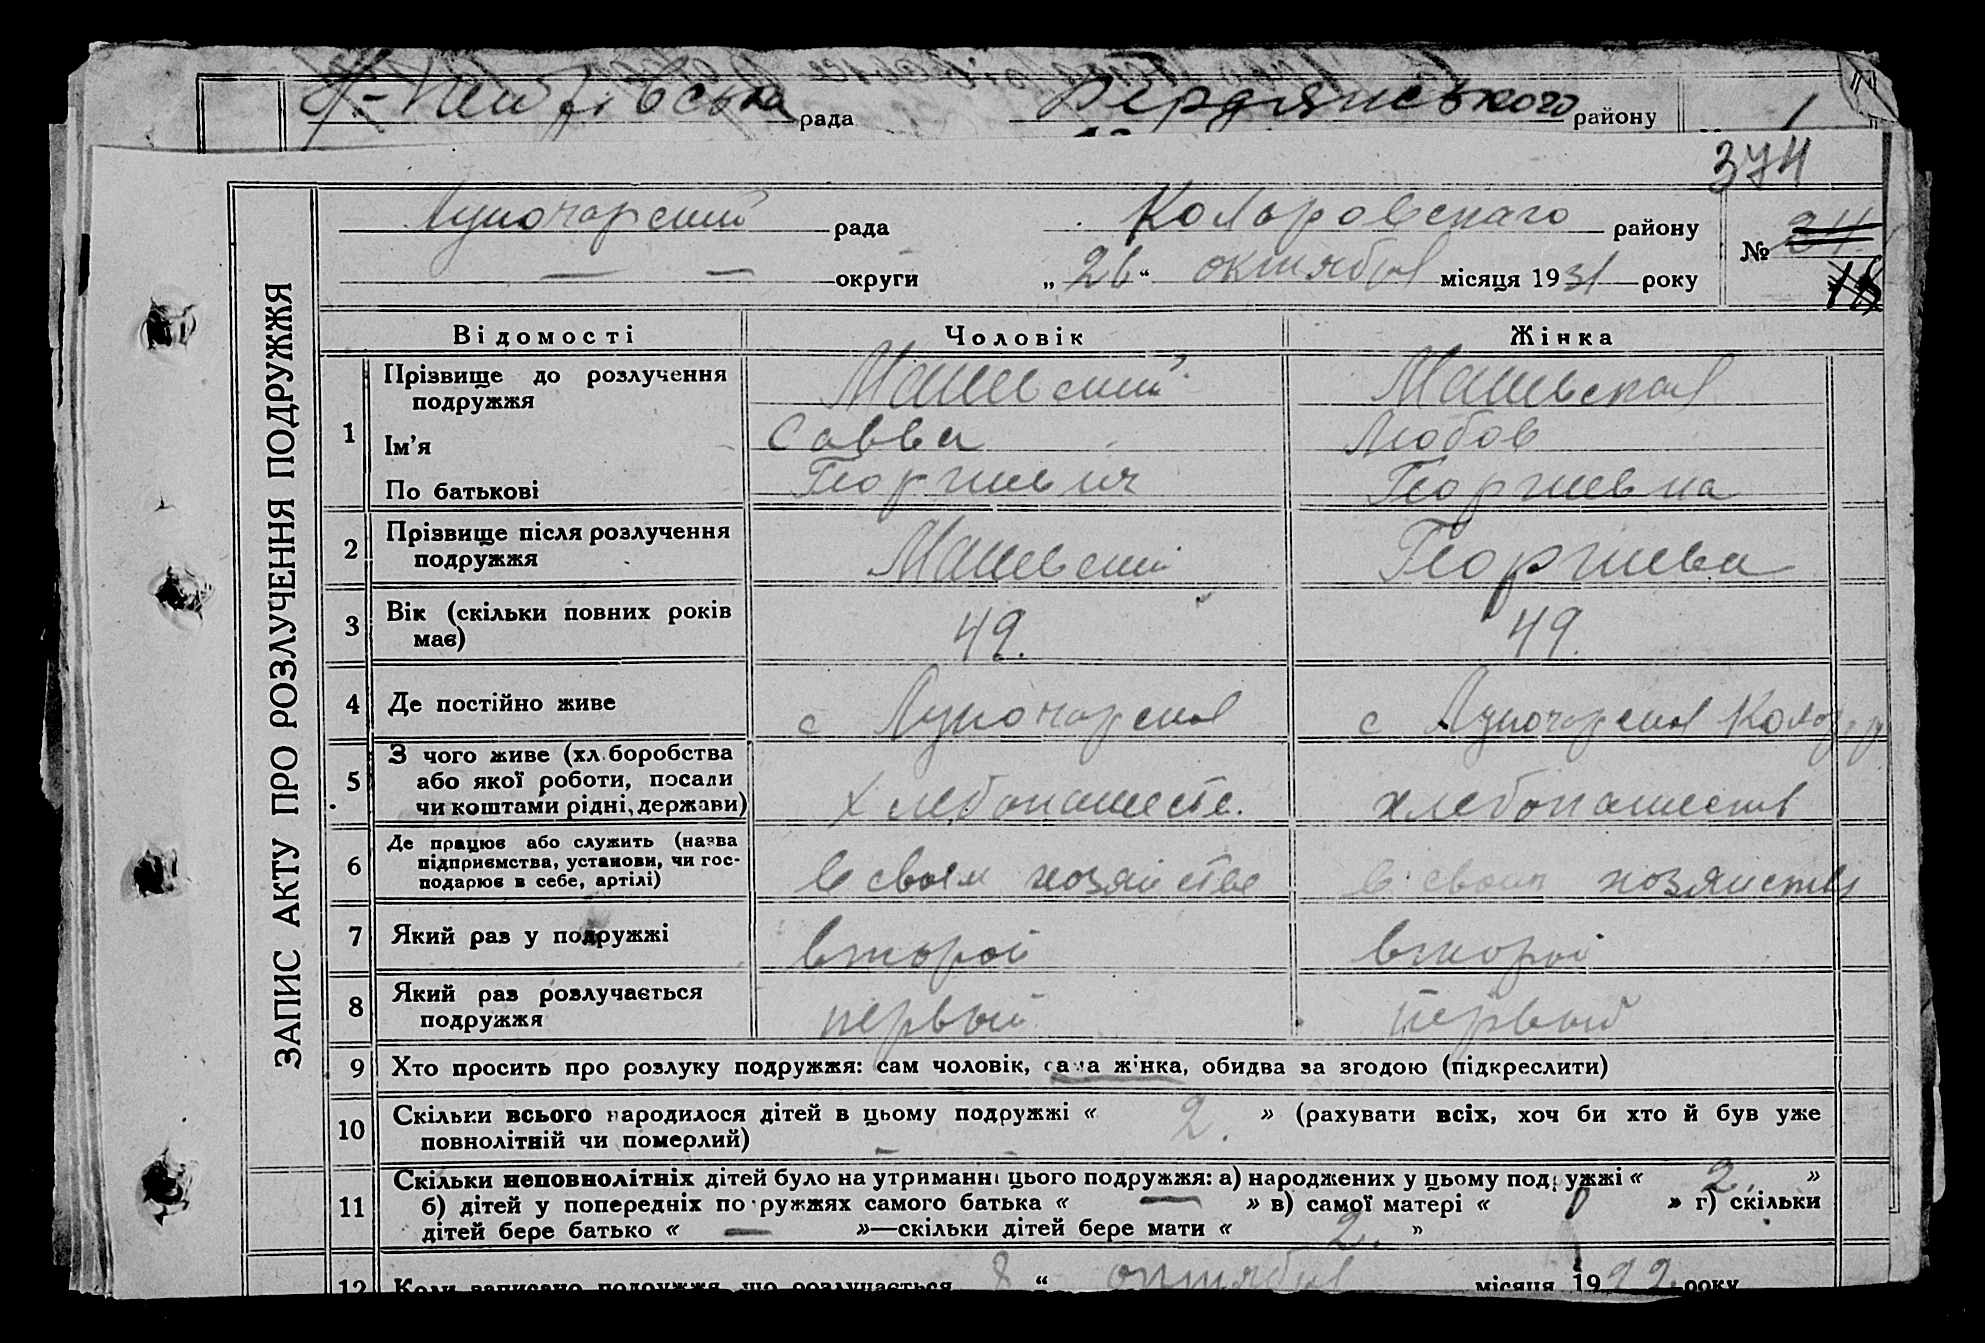 рада Бердянського району 1
374
Луночарский рада Коларовскаго району
№ 24
— — округи „26“ октября місяця 1931 року
18
ЗАПИС АКТУ ПРО РОЗЛУЧЕННЯ ПОДРУЖЖЯ
Відомості Чоловік Жінка
1 Прізвище до розлучення подружжя Машевский Машевская
Ім’я Савва Любов
По батькові Георгиевич Георгиевна
2 Прізвище після розлучення подружжя Машевский Георгиева
3 Вік (скільки повних років має) 49. 49.
4 Де постійно живе с Луночарск с Луночарск
5 З чого живе (хл.боробства або якої роботи, посади чи коштами рідні, держави) хлебопашеств. хлебопашеств
6 Де працює або служить (назва підприємства, установи, чи господарює в себе, артілі) в своем хозяйстве в своем хозяйстве
7 Який раз у подружжі второй второй
8 Який раз розлучається подружжя первый первый
9 Хто просить про розлуку подружжя: сам чоловік, сама жінка, обидва за згодою (підкреслити)
10 Скільки всього народилося дітей в цьому подружжі « 2. » (рахувати всіх, хоч би хто й був уже
повнолітній чи померлий)
11 Скільки неповнолітніх дітей було на утриманні цього подружжя: а) народжених у цьому подружжі « 2. »
б) дітей у попередніх подружжях самого батька « — » в) самої матері « » г) скільки
дітей бере батько « — »—скільки дітей бере мати « 2. »
12 Коли записано подружжя, що розлучається 8 “ октября місяця 1922 року